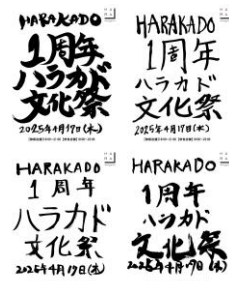 HARAKADO
1周年
ハラカド
文化祭
2025年4月17日(木)
HARAKADO
1周年
ハラカド
文化祭
2025年4月17日(木)
HARAKADO
1周年
ハラカド
文化祭
2025年4月17日(木)
HARAKADO
1周年
ハラカド
文化祭
2025年4月17日(木)